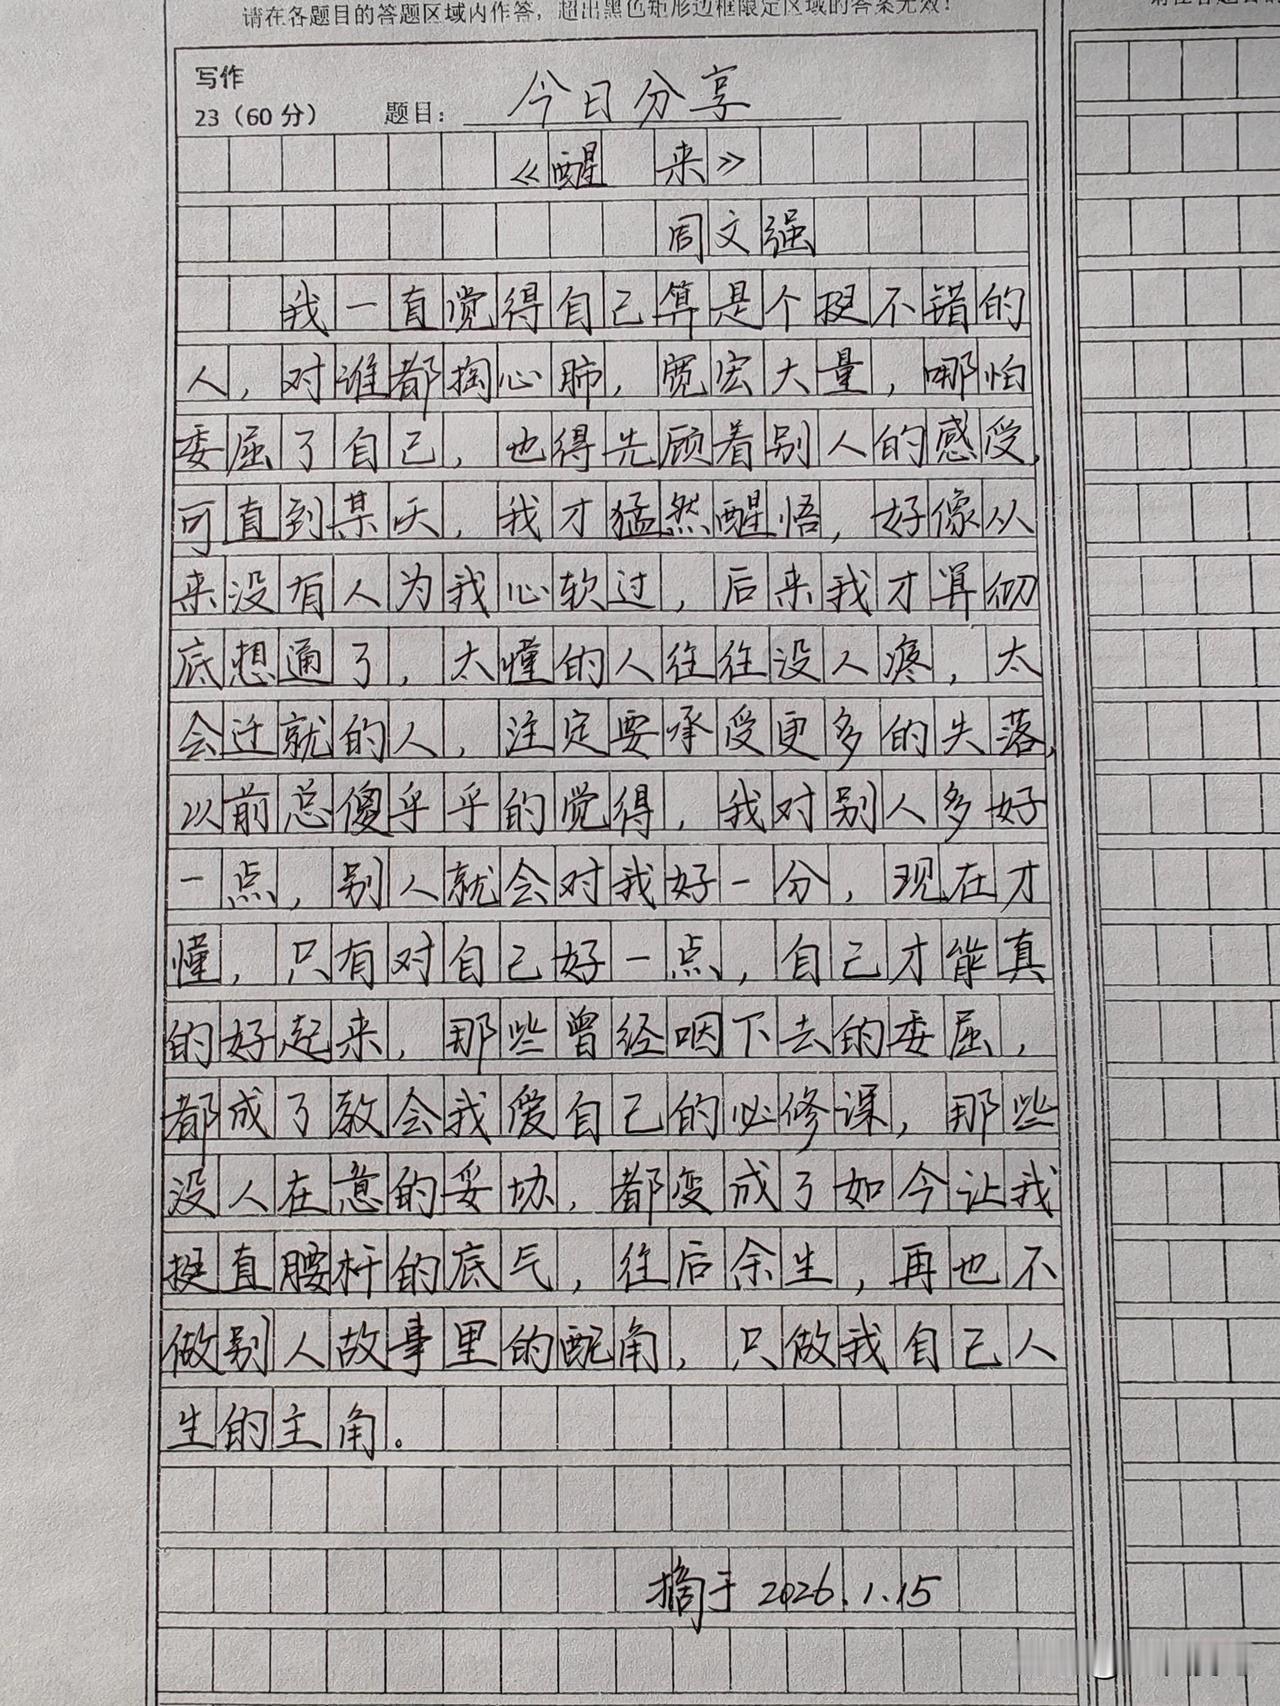 请在各题目的答题区域内作答，超出黑色矩形边框限定区域的答案无效！
写作
23（60分） 题目：今日分享
《醒 来》
周文强
我一直觉得自己算是个挺不错的
人，对谁都掏心肺，宽宏大量，哪怕
委屈了自己，也得先顾着别人的感受，
可直到某天，我才猛然醒悟，好像从
来没有人为我心软过，后来我才算彻
底想通了，太懂的人往往没人疼，太
会迁就的人，注定要承受更多的失落，
以前总傻乎乎的觉得，我对别人多好
一点，别人就会对我好一分，现在才
懂，只有对自己好一点，自己才能真
的好起来，那些曾经咽下去的委屈，
都成了教会我爱自己的必修课，那些
没人在意的妥协，都变成了如今让我
挺直腰杆的底气，往后余生，再也不
做别人故事里的配角，只做我自己人
生的主角。
摘于 2026.1.15